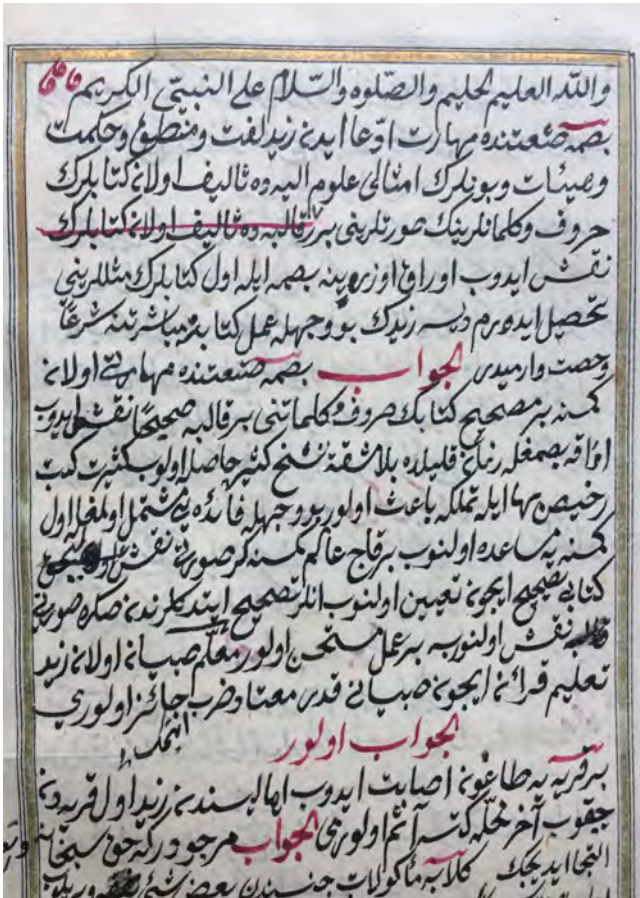 والله العليم الحليم والصلوه والسلام على النبي الكريم
بصمه صنعتنده مهارت ادعا ايدن زيد لغت ومنطق وحكمت
وهيئات وبونلرك امثالى علوم اليه ده تاليف اولان كتابلرك
حروف وكلماتلرينك صورتلرينى بر قالبه ده تاليف اولان كتابلرك
نقش ايدوب اوراق اوزرينه بصمه ايله اول كتابلرك مثللرينى
تحصيل ايده يرم ديسه زيدك بو وجهله عمل كتابه مباشرتنه شرعا
رخصت وارميدر الجواب بصمه صنعتنده مهارتى اولان
كمسنه بر مصحح كتابك حروف وكلماتنى بر قالبه صحيحا نقش ايدوب
اوراقه بصمغله زمان قليلده بلا مشقه نسخ كثيره حاصله اولوب كثرت كتب
رخيص بها ايله تملكه باعث اولور بو وجهله فائده يى مشتمل اولمغله اول
كمسنه يه مساعده اولنوب بر قاج عالم كمسنه لر صورتى نقش
كتابى تصحيح ايچون تعيين اولنوب انلر تصحيح ايتدكلرندن صكره صورتى
قالبه نقش اولنورسه بر عمل مستحسن اولور معلم صبيان اولان زيد
تعليم قرائن ايچون صبيانى قدر معتاد ضرب جائز اولورمى
ايتمك
الجواب اولور
بر قريه يه طاعون اصابت ايدوب اهاليسندن زيد اول قريه دن
چيقوب آخر محله كتسه آثم اولورمى الجواب مرجودركه حق سبحانه و
التجا ايديجك كلابه مأكولات جنسندن بعض شئ ويريلوب